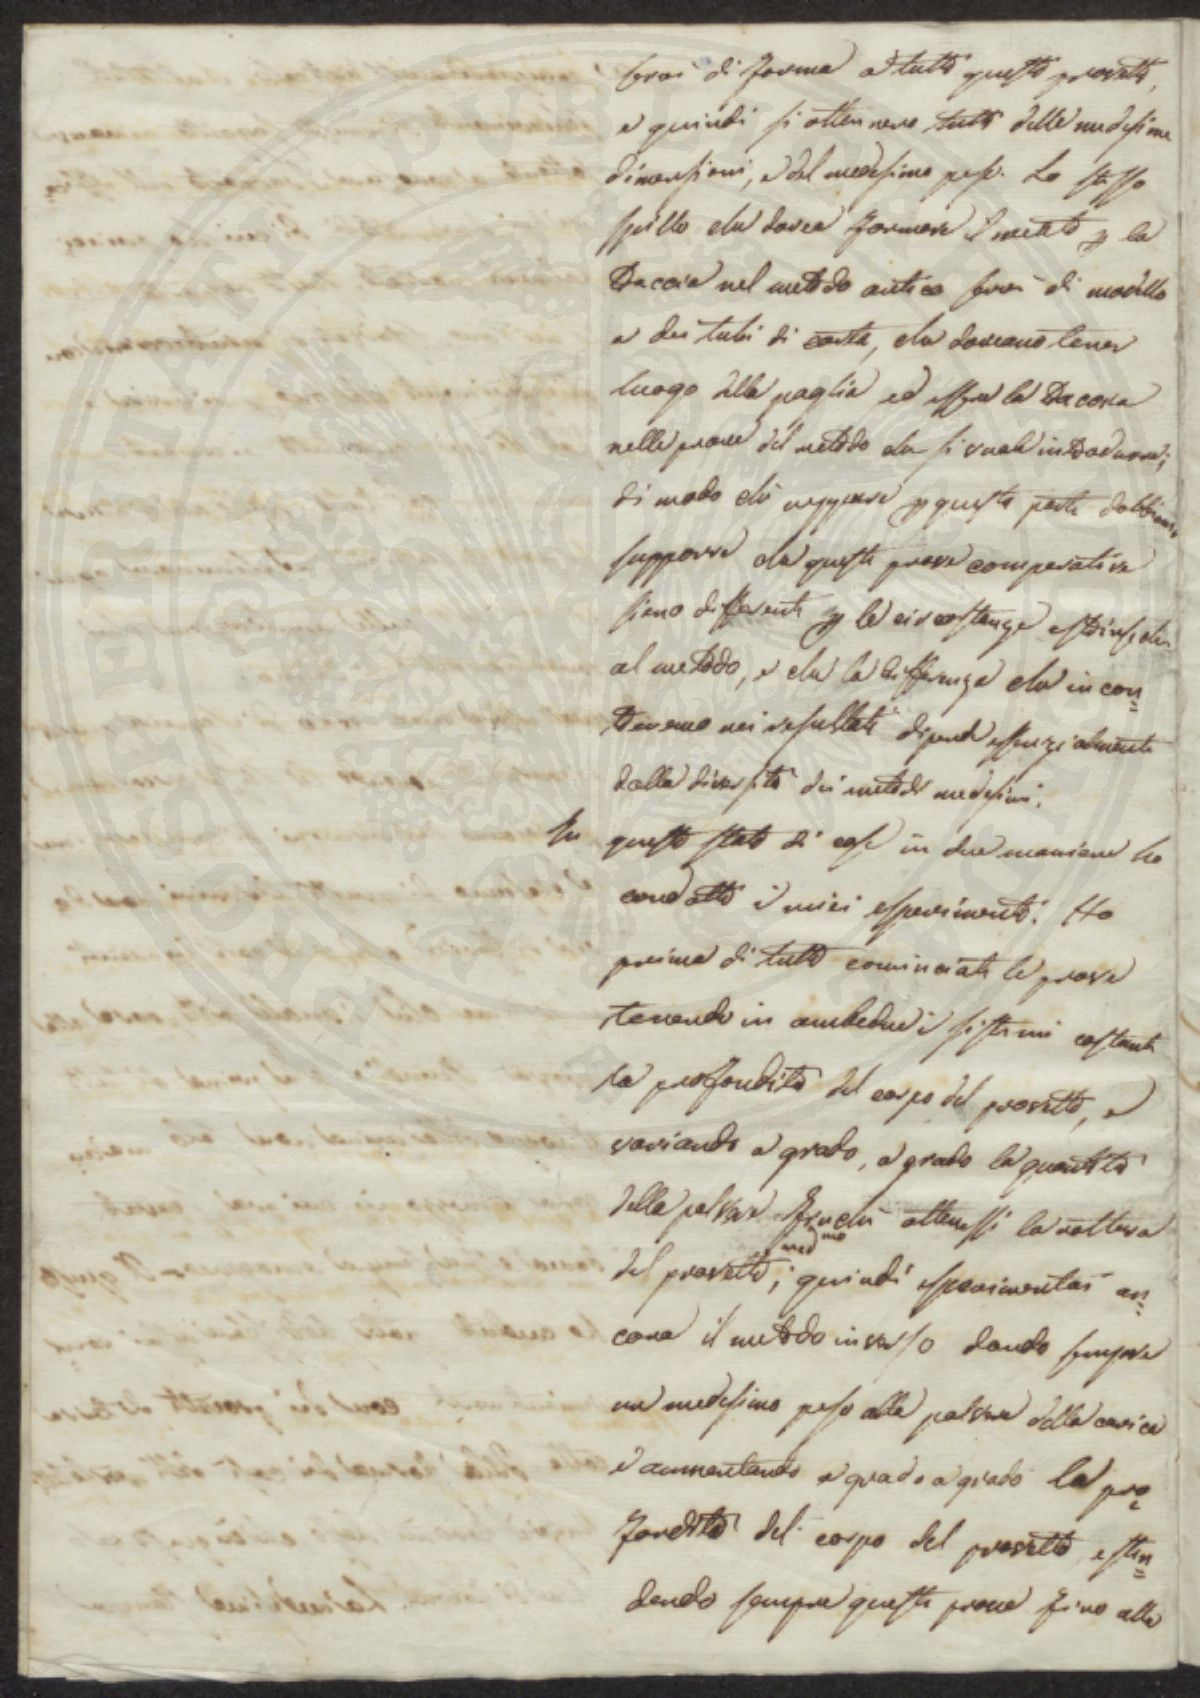 servi di forma a tutti questi provetti,
e quindi si ottennero tutti delle medesime
dimensioni, e del medesimo peso. Lo stesso
spillo che dovea formare il meato p la
Traccia nel metodo antico servì di modello
a dei tubi di carta, che doveano tener
luogo della paglia ed esser la Traccia
nelle prove del metodo che si vuole introdurre;
di modo che neppure p questa parte dobbiamo
supporre che queste prove comparative
sieno differenti p le circostanze estrinseche
al metodo, e che la differenza che incon=
treremo nei resultati dipende essenzialmente
dalla diversità dei metodi medesimi.
In questo stato di cose in due maniere ho
condotto i miei esperimenti. Ho
prima di tutto cominciate le prove
tenendo in ambedue i sistemi costante
la profondità del corpo del provetto, e
variando a grado, a grado la quantità
della polvere finchè ottenessi la rottura
del provetto med.mo; quindi esperimentai an=
cora il metodo inverso dando sempre
un medesimo peso alla polvere della carica
e aumentando a grado a grado la pro=
fondità del corpo del provetto esten=
dendo sempre queste prove fino alla